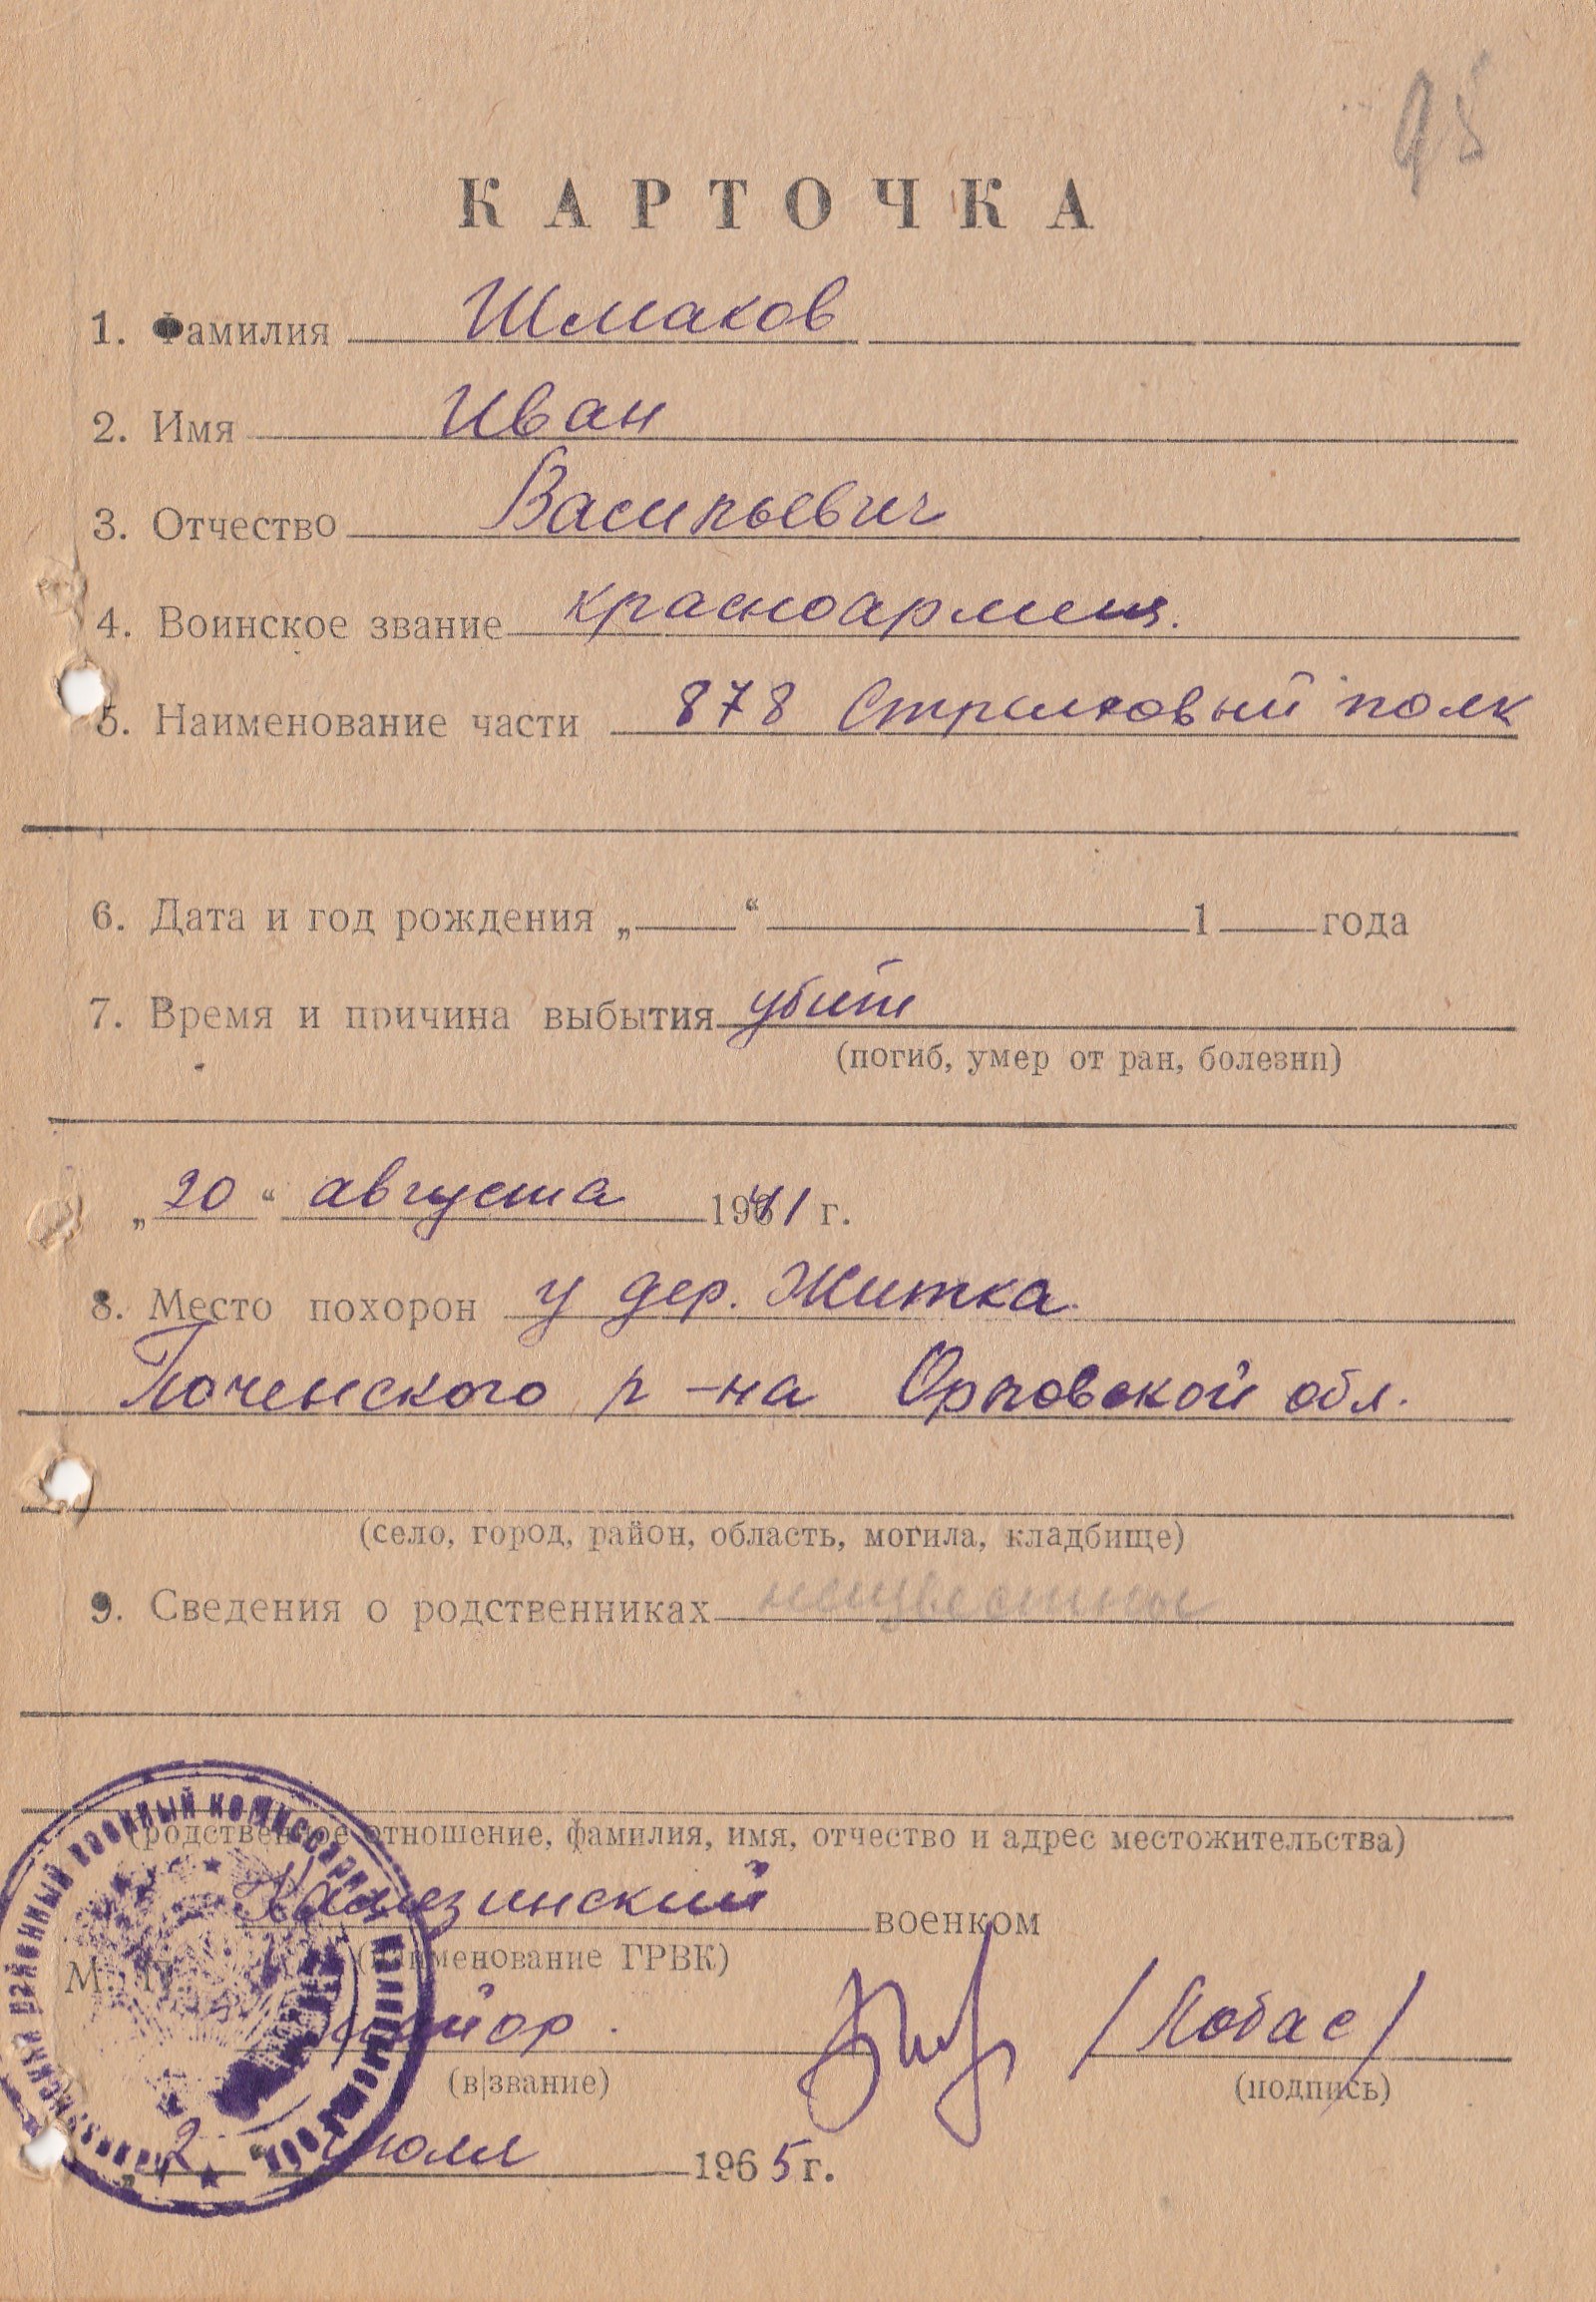 95
КАРТОЧКА
1. Фамилия Шмаков
2. Имя Иван
3. Отчество Васильевич
4. Воинское звание красноармеец.
5. Наименование части 878 Стрелковый полк
6. Дата и год рождения „ “ 1 года
7. Время и причина выбытия убит
(погиб, умер от ран, болезни)
„20“ августа 1941 г.
8. Место похорон у дер. Житка.
Поченского р-на Орловской обл.
(село, город, район, область, могила, кладбище)
9. Сведения о родственниках неизвестны
(родственное отношение, фамилия, имя, отчество и адрес местожительства)
военком
(наименование ГРВК)
М. П. майор.
(в|звание)
/Лобас/
(подпись)
„2“ июля 1965 г.
районный военный комиссариат